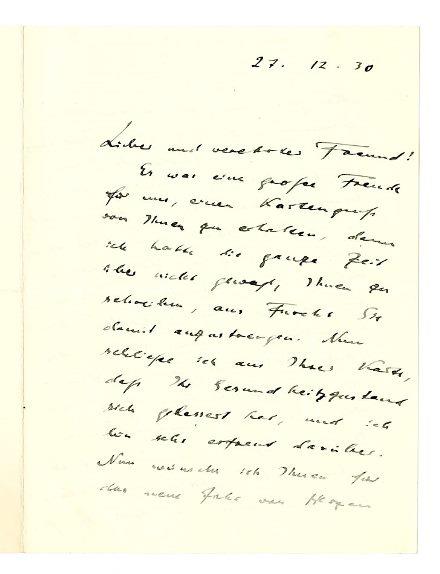 27. 12. 30
Lieber und verehrter Freund!
Es war eine große Freude
für uns, einen Kartengruß
von Ihnen zu erhalten, denn
ich hatte die ganze Zeit
über nicht gewagt, Ihnen zu
schreiben, aus Furcht Sie
damit anzustrengen. Nun
schließe ich aus Ihrer Karte,
daß Ihr Gesundheitszustand
sich gebessert hat, und ich
bin sehr erfreut darüber.
Nun wünsche ich Ihnen für
das neue Jahr von Herzen